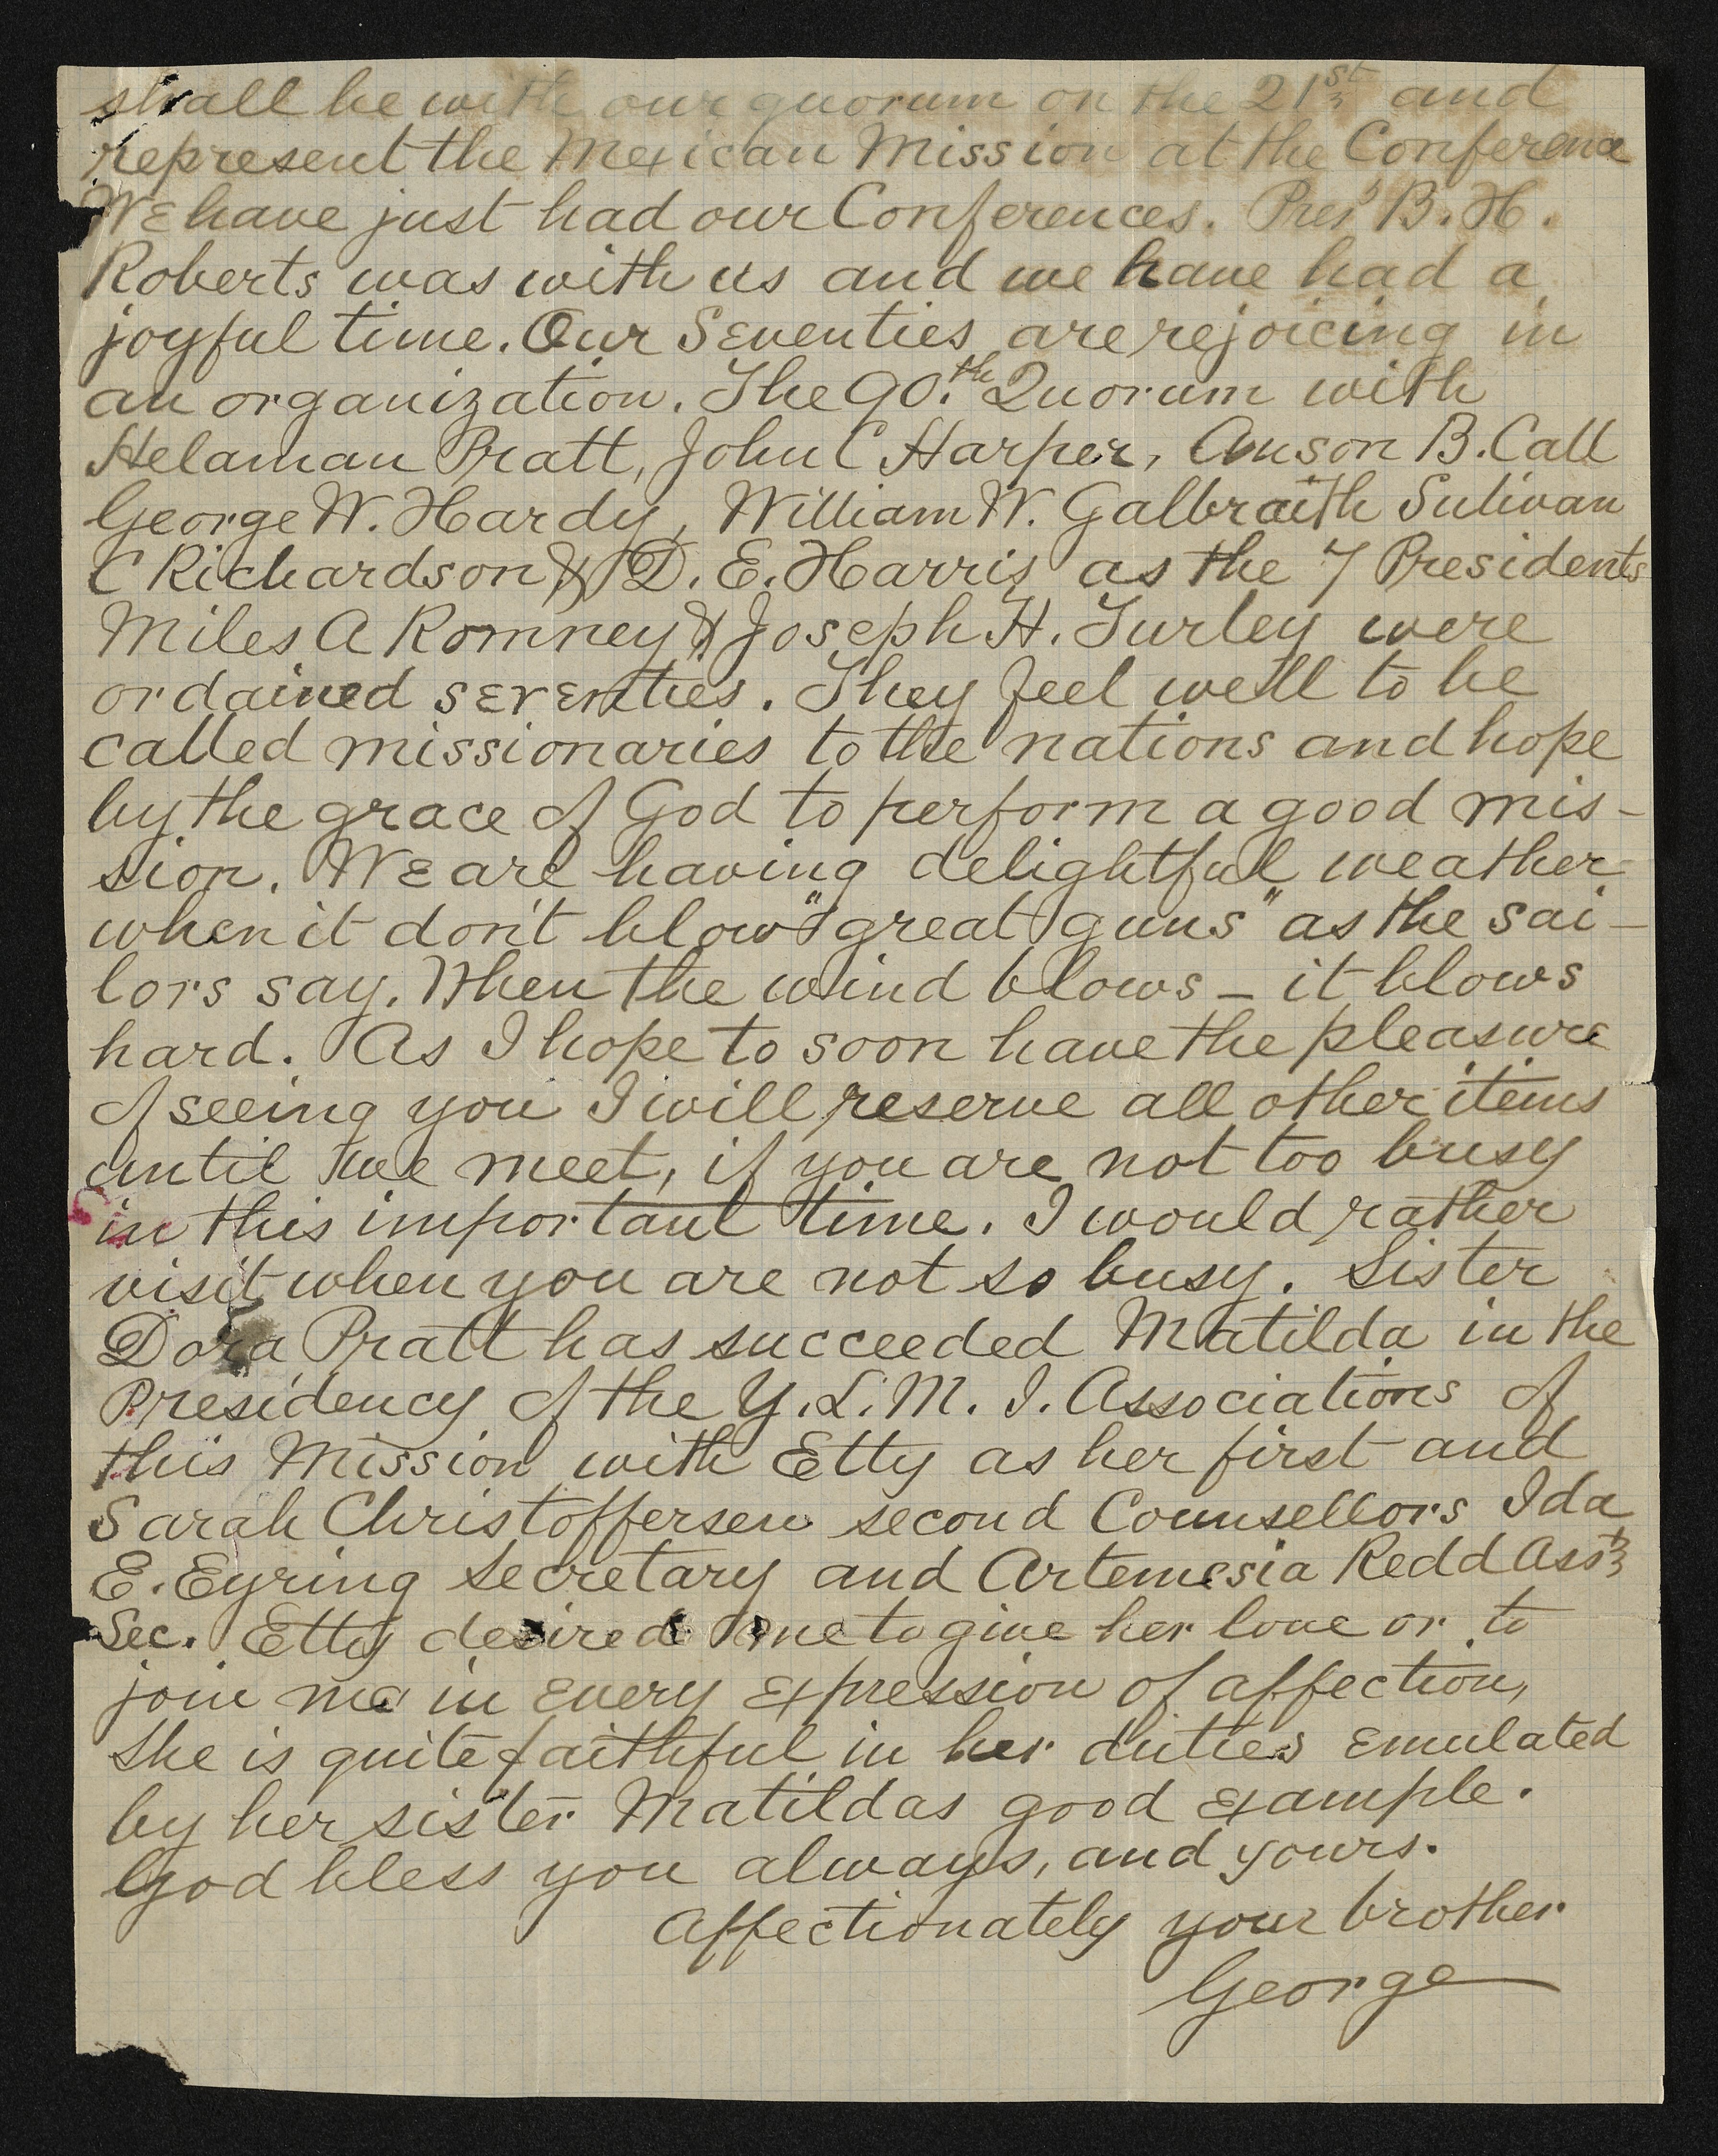 shall be with our quorum on the 21st and
represent the Mexican Mission at the Conference
We have just had our Conferences. Pres't B. H.
Roberts was with us and we have had a
joyful time. Our Seventies are rejoicing in
an organization. The 90.th Quorum with
Helaman Pratt, John C Harper, Anson B. Call
George W. Hardy, William W. Galbraith Sulivan
C Richardson & D. E. Harris as the 7 Presidents
Miles A Romney & Joseph H. Turley were
ordained seventies. They feel well to be
called missionaries to the nations and hope
by the grace of God to perform a good mis-
sion. We are having delightful weather
when it don't blow "great guns" as the sai-
lors say. When the wind blows - it blows
hard. As I hope to soon have the pleasure
of seeing you I will reserve all other items
until we meet, if you are not too busy
in this important time. I would rather
visit when you are not so busy. Sister
Dora Pratt has succeeded Matilda in the
Presidency of the Y. L. M. I. Associations of
this Mission with Etty as her first and
Sarah Christoffersen second Counsellors Ida
E. Eyring Secretary and Artemesia Redd Asst
Sec. Etty desired me to give her love or to
join me in every expression of affection,
She is quite faithful in her duties emulated
by her sister Matildas good example.
God bless you always, and yours.
Affectionately your brother
George